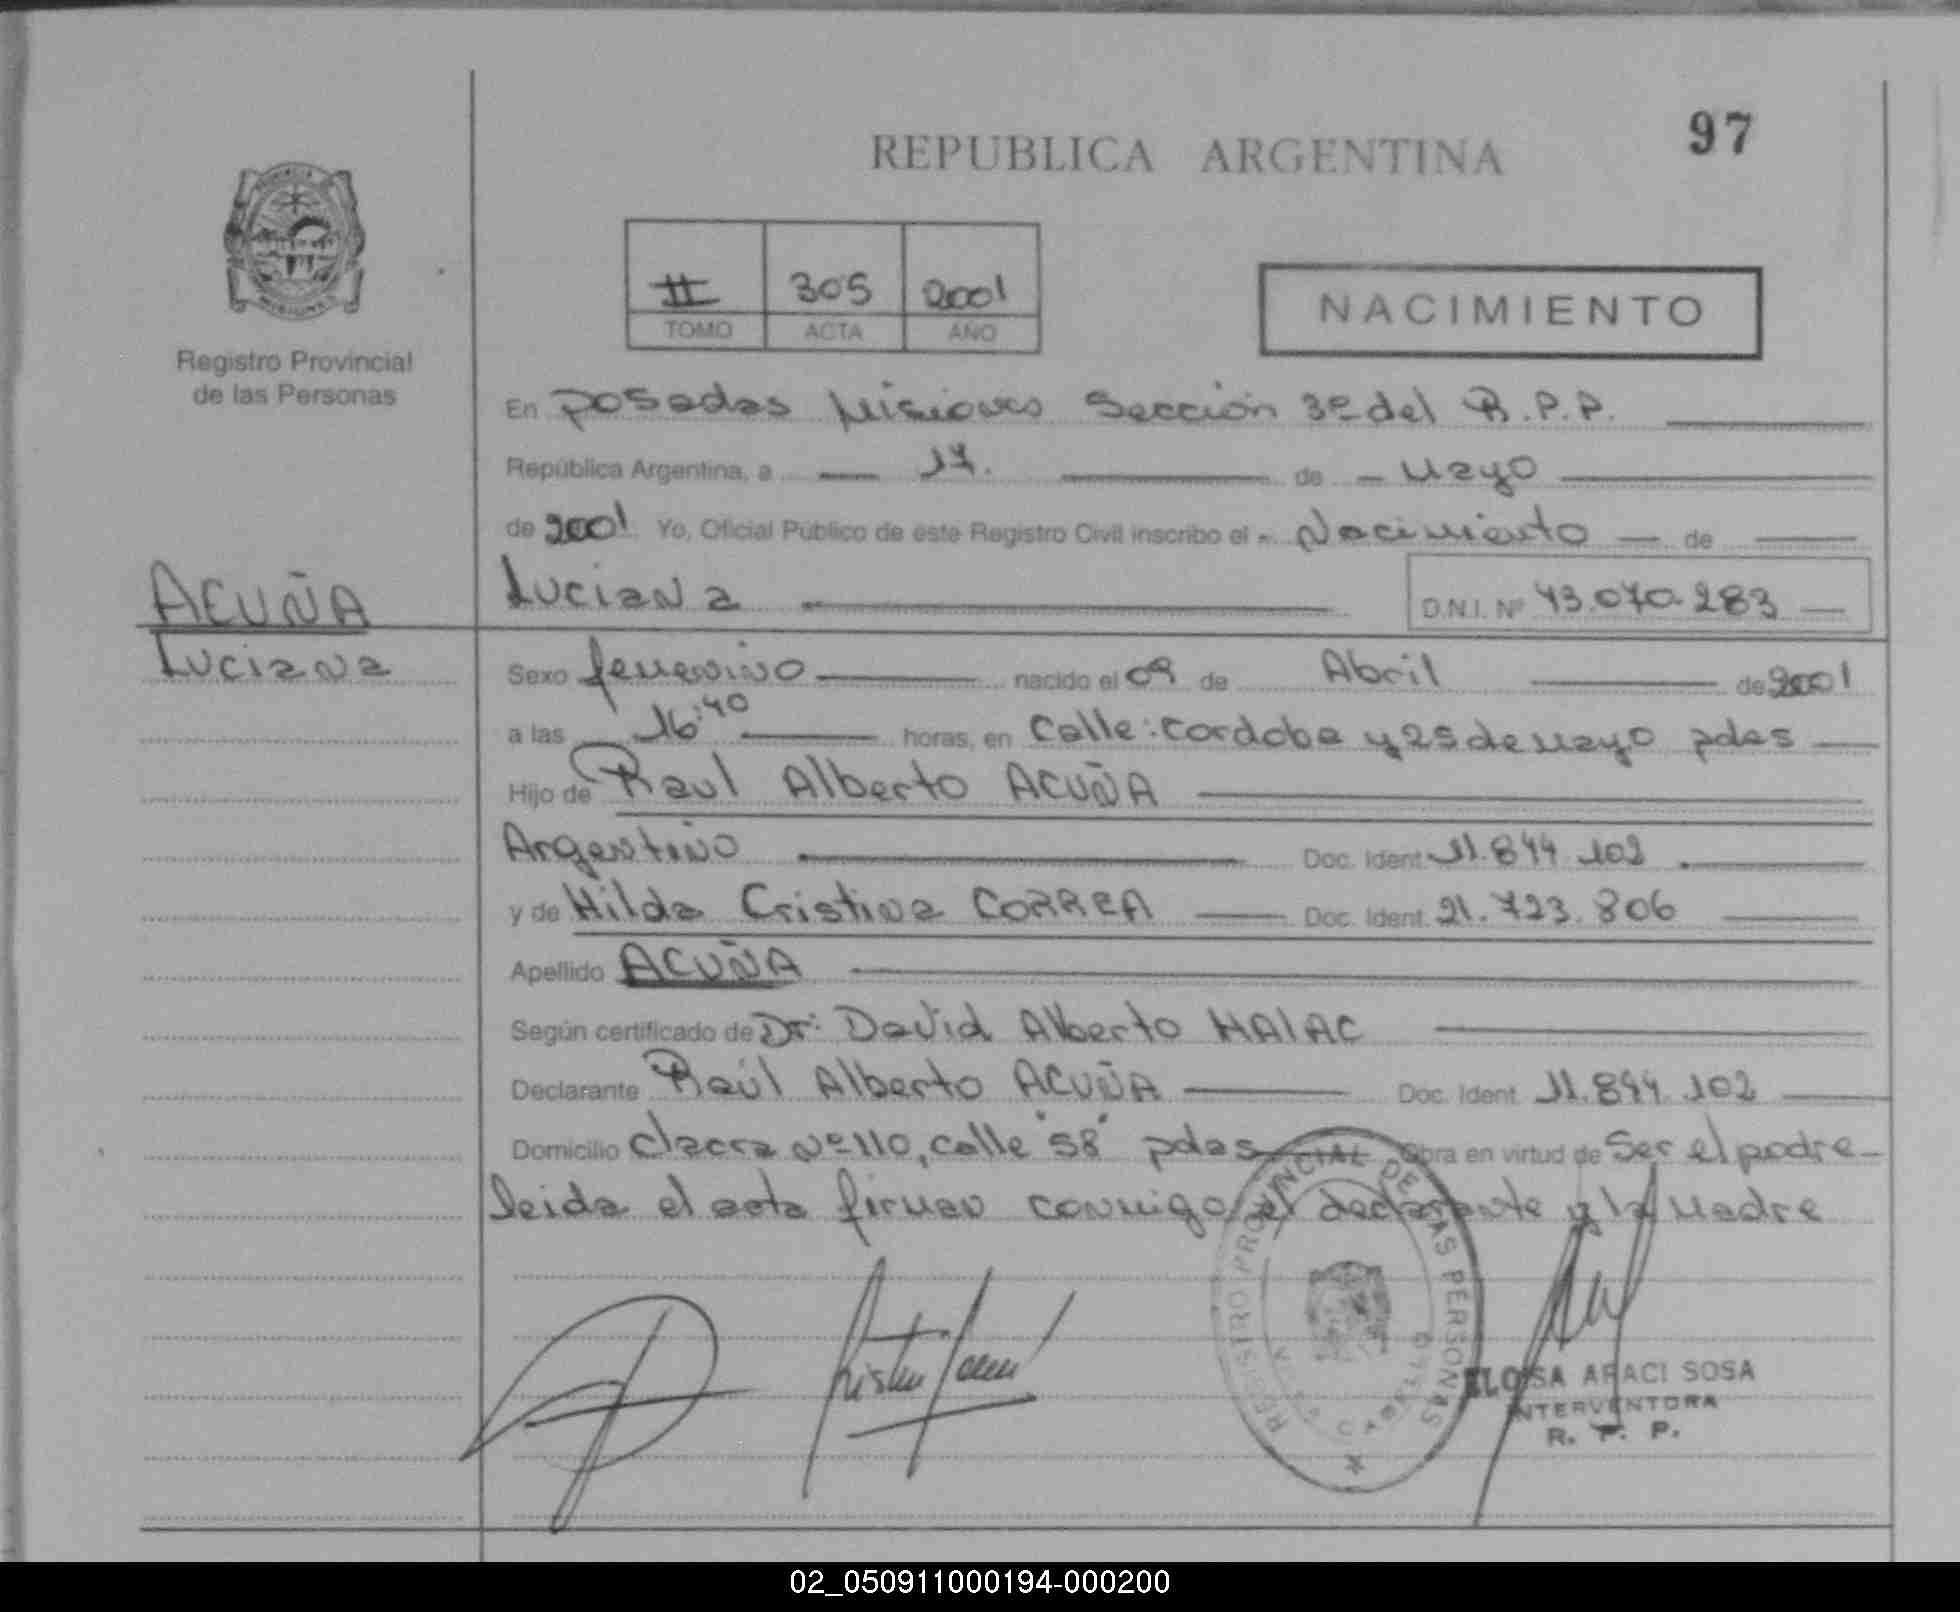 97
REPUBLICA ARGENTINA
II 305 2001
TOMO ACTA AÑO
NACIMIENTO
Registro Provincial
de las Personas
En Posadas Misiones Sección 3º del R.P.P.
República Argentina, a 17. de Mayo
de 2001 Yo, Oficial Público de este Registro Civil inscribo el Nacimiento de
ACUÑA
Luciana
Luciana D.N.I. Nº 43.070.283
Sexo femenino nacido el 09 de Abril de 2001
a las 16:40 horas, en Calle: Cordoba y 25 de Mayo pdas
Hijo de Raul Alberto ACUÑA
Argentino Doc. Ident. 11.844.102
y de Hilda Cristina CORREA Doc. Ident. 21.723.806
Apellido ACUÑA
Según certificado de Dr: David Alberto HALAC
Declarante Raúl Alberto ACUÑA Doc. Ident. 11.844.102
Domicilio Chacra Nº 110, calle "58" pdas Obra en virtud de Ser el padre
leida el acta firman conmigo el declarante y la Madre
REGISTRO PROVINCIAL DE LAS PERSONAS
VILLA CABELLO
ELOISA ARACI SOSA
INTERVENTORA
R. P. P.
02_050911000194-000200